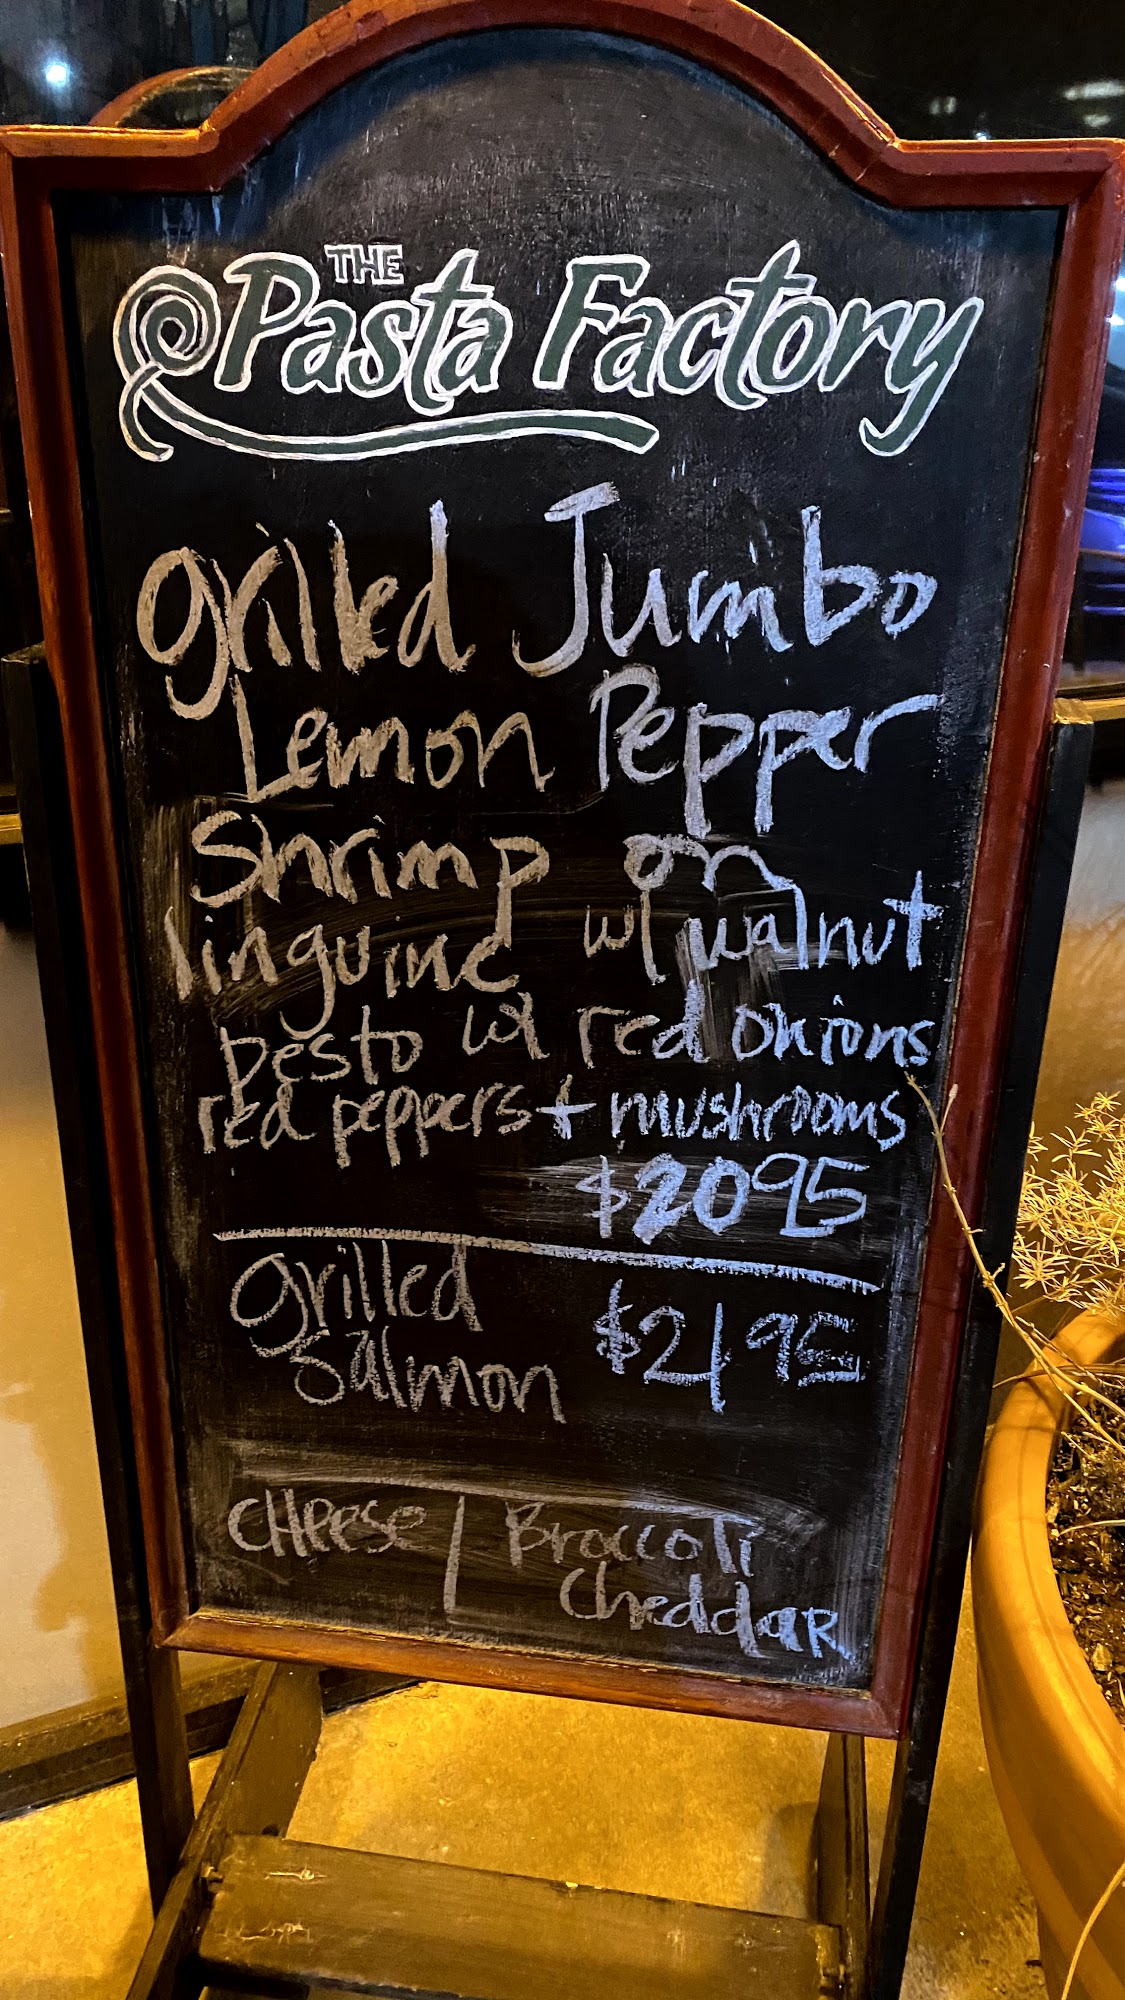 THE
Pasta Factory
grilled Jumbo
Lemon Pepper
Shrimp on
linguine w/ walnut
pesto w/ red onions
red peppers + mushrooms
$2095
grilled
salmon $2195
CHeese / Broccoli
Cheddar